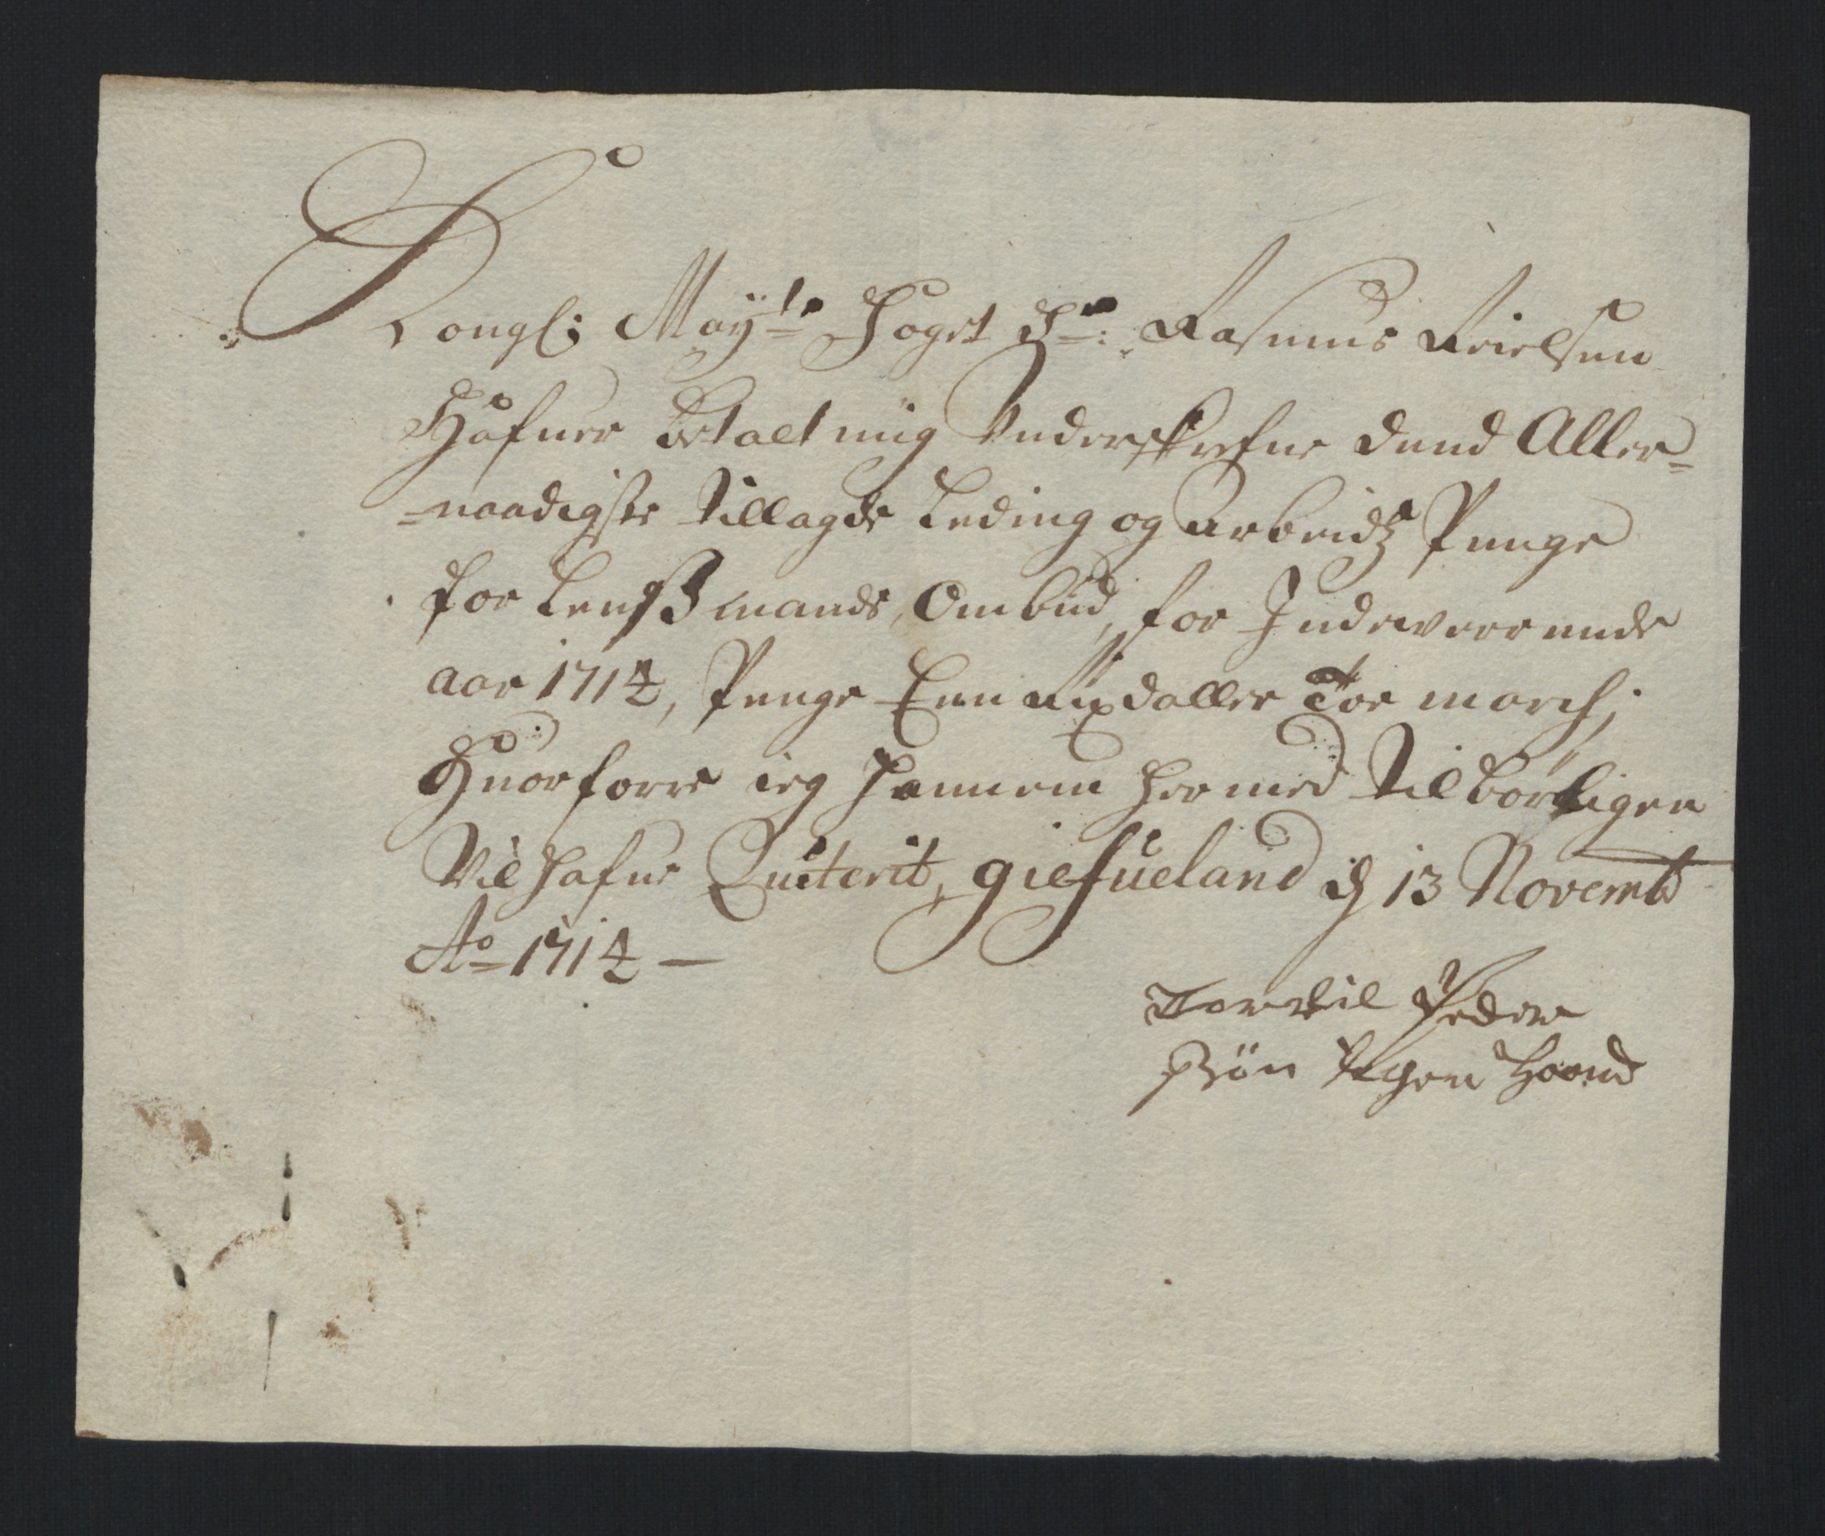 Kongl: Mayts Foget Sr: Rasmus Nielsen
Hafuer Betalt mig Underskrefne dend Aller=
=naadigste tillagde Leding og arbeidtz Penge
for Lenßmands Ombud, for Indeverrende
aar 1714, Penge Enn rixdaller Toe march;
Huorforre ieg hannem hermed tilbørligen
Vil hafue Quiterit, giefueland d 13 Novemb
Ao 1714 —
Torkil Peder
søn Egen Haand